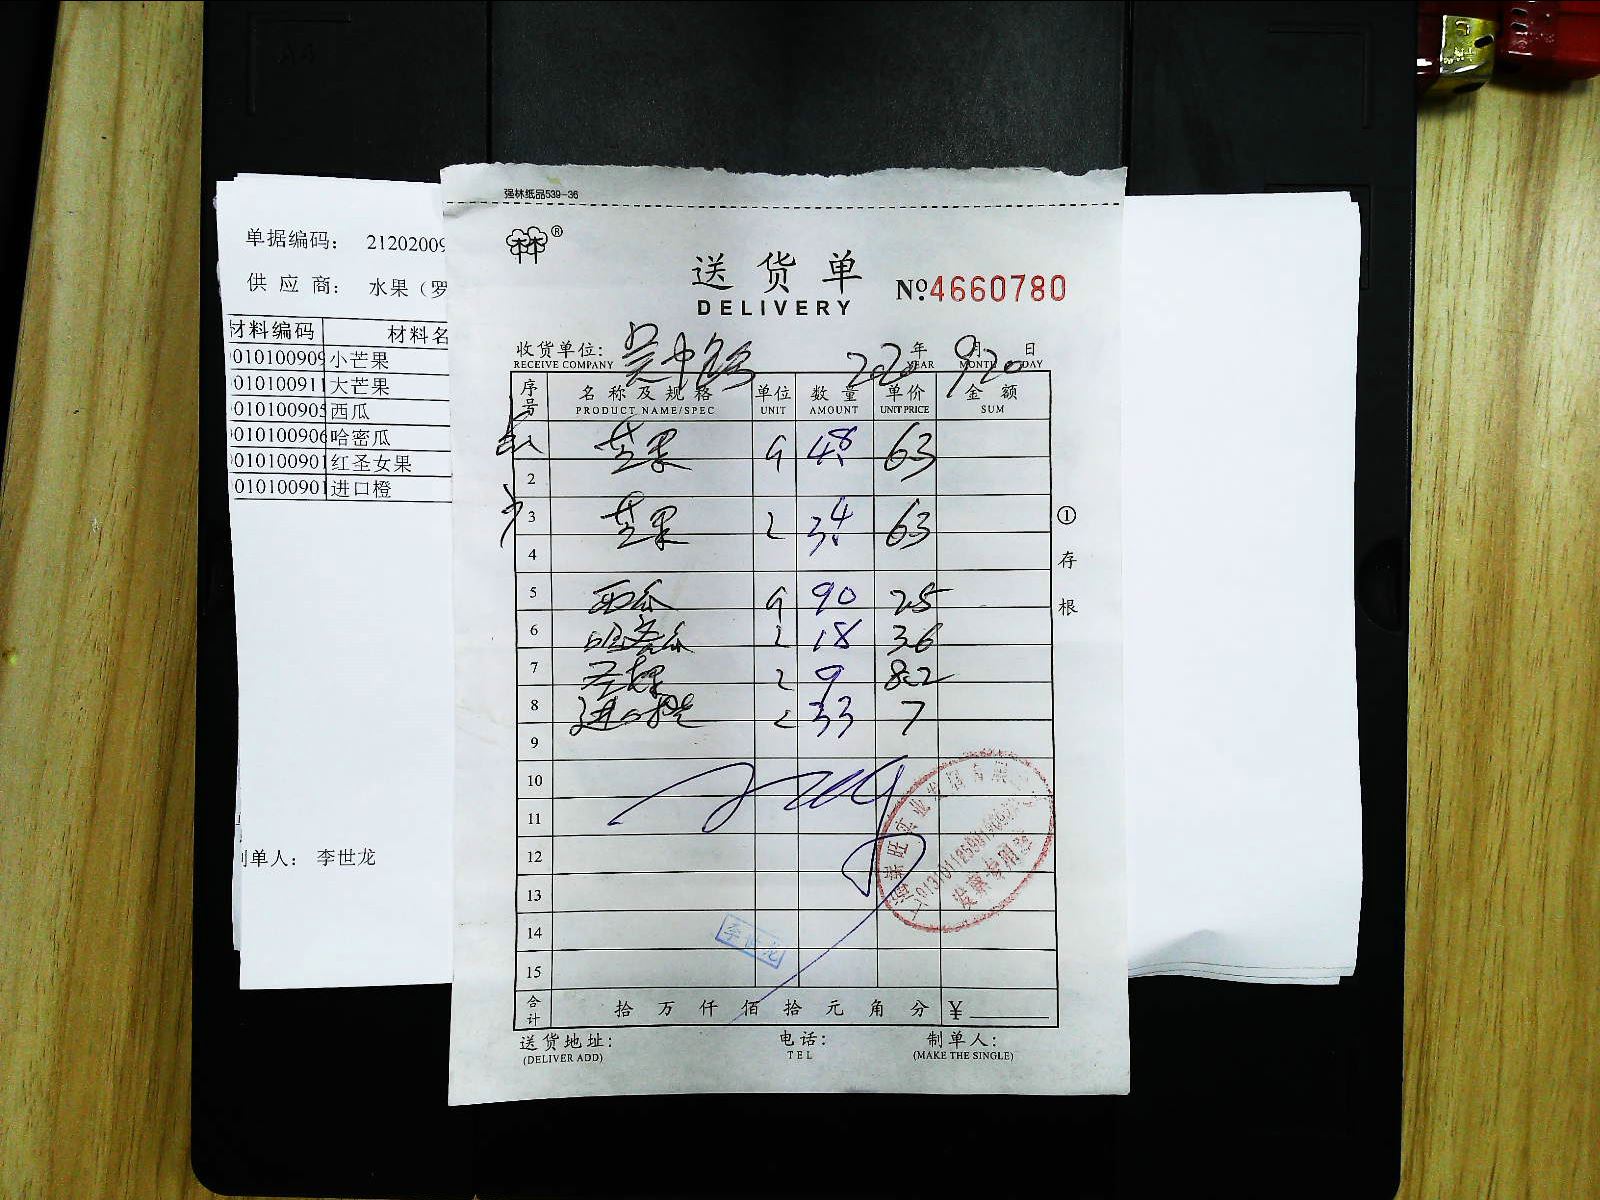 强林纸品539-36
®
送货单
DELIVERY
№4660780
收货单位: 吴中路 2020年 9月20日
RECEIVE COMPANY YEAR MONTH DAY
序号 名称及规格 单位 数量 单价 金额
PRODUCT NAME/SPEC UNIT AMOUNT UNIT PRICE SUM
芒果 48 63
2
3 小 芒果 34 63
4
5 西瓜 90 25
6 哈密瓜 18 36
7 圣女果 9 82
8 进口橙 33 7
9
10
11
12
13
14
15
李世龙
发票专用章
合计 拾万仟佰拾元角分 ¥
送货地址: 电话: 制单人:
(DELIVER ADD) TEL (MAKE THE SINGLE)
① 存根
单据编码: 21202009
供应商: 水果(罗
材料编码 材料名
01010090 小芒果
01010091 大芒果
01010090 西瓜
01010090 哈密瓜
01010090 红圣女果
01010090 进口橙
制单人: 李世龙